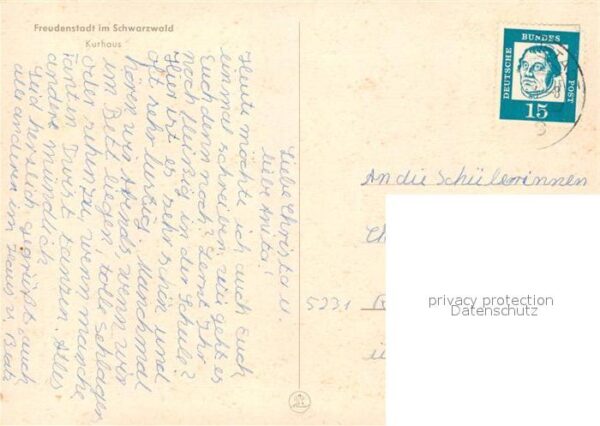 Freudenstadt im Schwarzwald
Kurhaus
Liebe Christa u.
liebe Anita!
Heute möchte ich auch Euch
einmal schreiben, wie geht es
Euch denn noch? Lernt Ihr
noch fleißig in der Schule?
Hier ist es sehr schön und
oft sehr lustig. Manchmal
hören wir Abends, wenn wir
im Bett liegen, tolle Schlager,
oder sehen zu, wenn manche
Tanten Twist tanzen. Alles
andere mündlich
Seid herzlich gegrüßt auch
alle andern im Haus v.
DEUTSCHE
BUNDES
POST
15
An die Schülerinnen
5231
privacy protection
Datenschutz